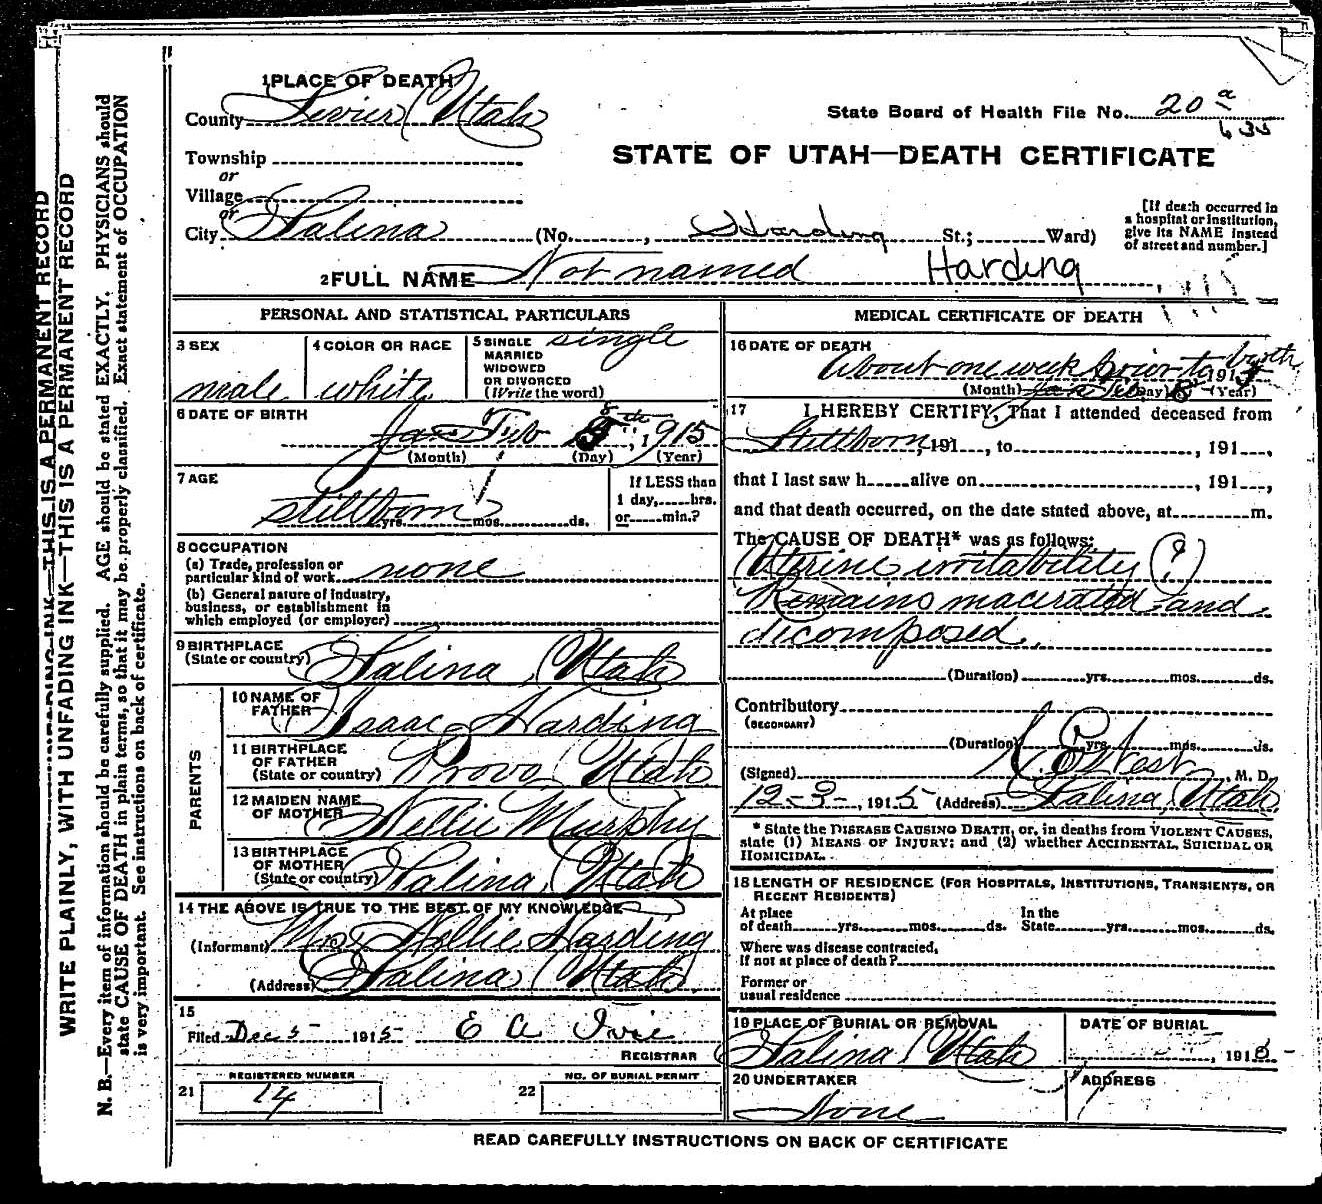 1 PLACE OF DEATH
County Sevier Utah
State Board of Health File No. 20 a
635
Township
or
Village
or
STATE OF UTAH—DEATH CERTIFICATE
City Salina (No. , Harding St.; Ward)
[If death occurred in
a hospital or institution,
give its NAME instead
of street and number.]
2 FULL NAME Not named Harding
PERSONAL AND STATISTICAL PARTICULARS
3 SEX
male
4 COLOR OR RACE
white
5 SINGLE
MARRIED
WIDOWED
OR DIVORCED
(Write the word)
single
6 DATE OF BIRTH
Jan Feb 8 th, 1915
(Month) (Day) (Year)
7 AGE
stillborn yrs. mos. ds.
If LESS than
1 day, hrs.
or min.?
8 OCCUPATION
(a) Trade, profession or
particular kind of work none
(b) General nature of industry,
business, or establishment in
which employed (or employer)
9 BIRTHPLACE
(State or country) Salina, Utah
PARENTS
10 NAME OF
FATHER Isaac Harding
11 BIRTHPLACE
OF FATHER
(State or country) Provo, Utah
12 MAIDEN NAME
OF MOTHER Nellie Murphy
13 BIRTHPLACE
OF MOTHER
(State or country) Salina, Utah
14 THE ABOVE IS TRUE TO THE BEST OF MY KNOWLEDGE
(Informant) Mrs Nellie Harding
(Address) Salina Utah
15
Filed Dec 5 1915 E A Ivie
REGISTRAR
REGISTERED NUMBER
21 14
NO. OF BURIAL PERMIT
22
MEDICAL CERTIFICATE OF DEATH
16 DATE OF DEATH
About one week prior to birth
Jan Feb 8 1915
(Month) (Day) (Year)
17 I HEREBY CERTIFY, That I attended deceased from
Stillborn, 191 , to , 191 ,
that I last saw h alive on , 191 ,
and that death occurred, on the date stated above, at m.
The CAUSE OF DEATH* was as follows:
Uterine irritability (?)
Remains macerated and
decomposed.
(Duration) yrs. mos. ds.
Contributory
(SECONDARY)
(Duration) yrs. mos. ds.
(Signed) E West, M. D.
12-3-, 1915 (Address) Salina, Utah
* State the DISEASE CAUSING DEATH, or, in deaths from VIOLENT CAUSES,
state (1) MEANS OF INJURY; and (2) whether ACCIDENTAL, SUICIDAL OR
HOMICIDAL.
18 LENGTH OF RESIDENCE (FOR HOSPITALS, INSTITUTIONS, TRANSIENTS, OR
RECENT RESIDENTS)
At place
of death yrs. mos. ds.
In the
State yrs. mos. ds.
Where was disease contracted,
if not at place of death?
Former or
usual residence
19 PLACE OF BURIAL OR REMOVAL
Salina, Utah
DATE OF BURIAL
, 1915
20 UNDERTAKER
None
ADDRESS
READ CAREFULLY INSTRUCTIONS ON BACK OF CERTIFICATE
THIS IS A PERMANENT RECORD
WRITE PLAINLY, WITH UNFADING INK—THIS IS A PERMANENT RECORD
N. B.—Every item of information should be carefully supplied. AGE should be stated EXACTLY. PHYSICIANS should
state CAUSE OF DEATH in plain terms, so that it may be properly classified. Exact statement of OCCUPATION
is very important. See instructions on back of certificate.